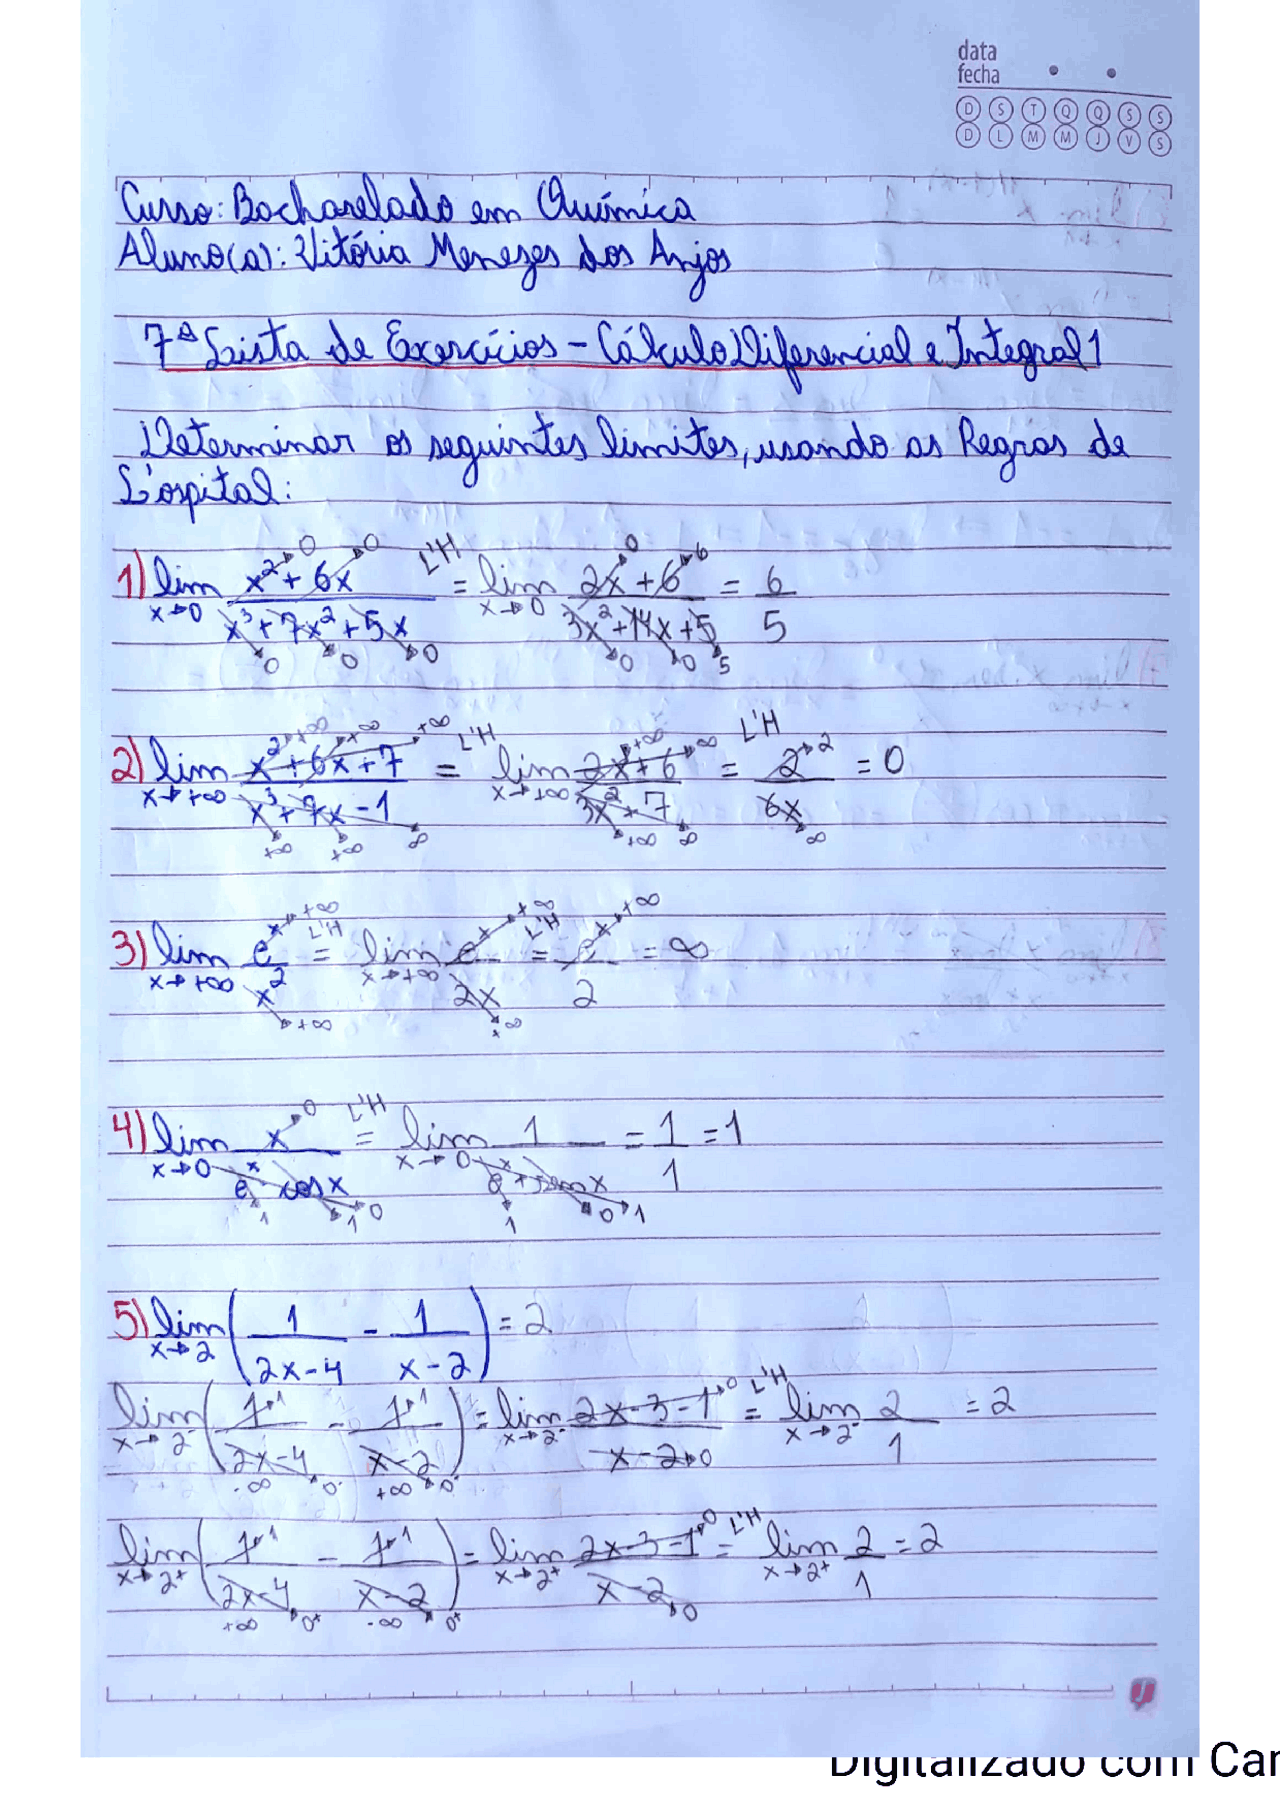 data
fecha
D S T Q Q S S
D L M M J V S
Curso: Bacharelado em Química
Aluno(a): Vitória Menezes dos Anjos
7ª Lista de Exercícios - Cálculo Diferencial e Integral 1
Determinar os seguintes limites, usando as Regras de
L'ospital:
1) lim x→0 (x² + 6x)/(x³ + 7x² + 5x) L'H = lim x→0 (2x + 6)/(3x² + 14x + 5) = 6/5
2) lim x→+∞ (x² + 6x + 7)/(x³ + 7x - 1) L'H = lim x→+∞ (2x + 6)/(3x² + 7) L'H = 2/6x = 0
3) lim x→+∞ eˣ/x² L'H = lim x→+∞ eˣ/2x L'H = eˣ/2 = ∞
4) lim x→0 x/(eˣ - cos x) L'H = lim x→0 1/(eˣ + sen x) = 1/1 = 1
5) lim x→2 (1/(2x-4) - 1/(x-2)) = 2
lim x→2⁻ (1/(2x-4) - 1/(x-2)) = lim x→2⁻ (2x-3-1)/(x-2) L'H = lim x→2⁻ 2/1 = 2
lim x→2⁺ (1/(2x-4) - 1/(x-2)) = lim x→2⁺ (2x-3-1)/(x-2) L'H = lim x→2⁺ 2/1 = 2
Digitalizado com Car